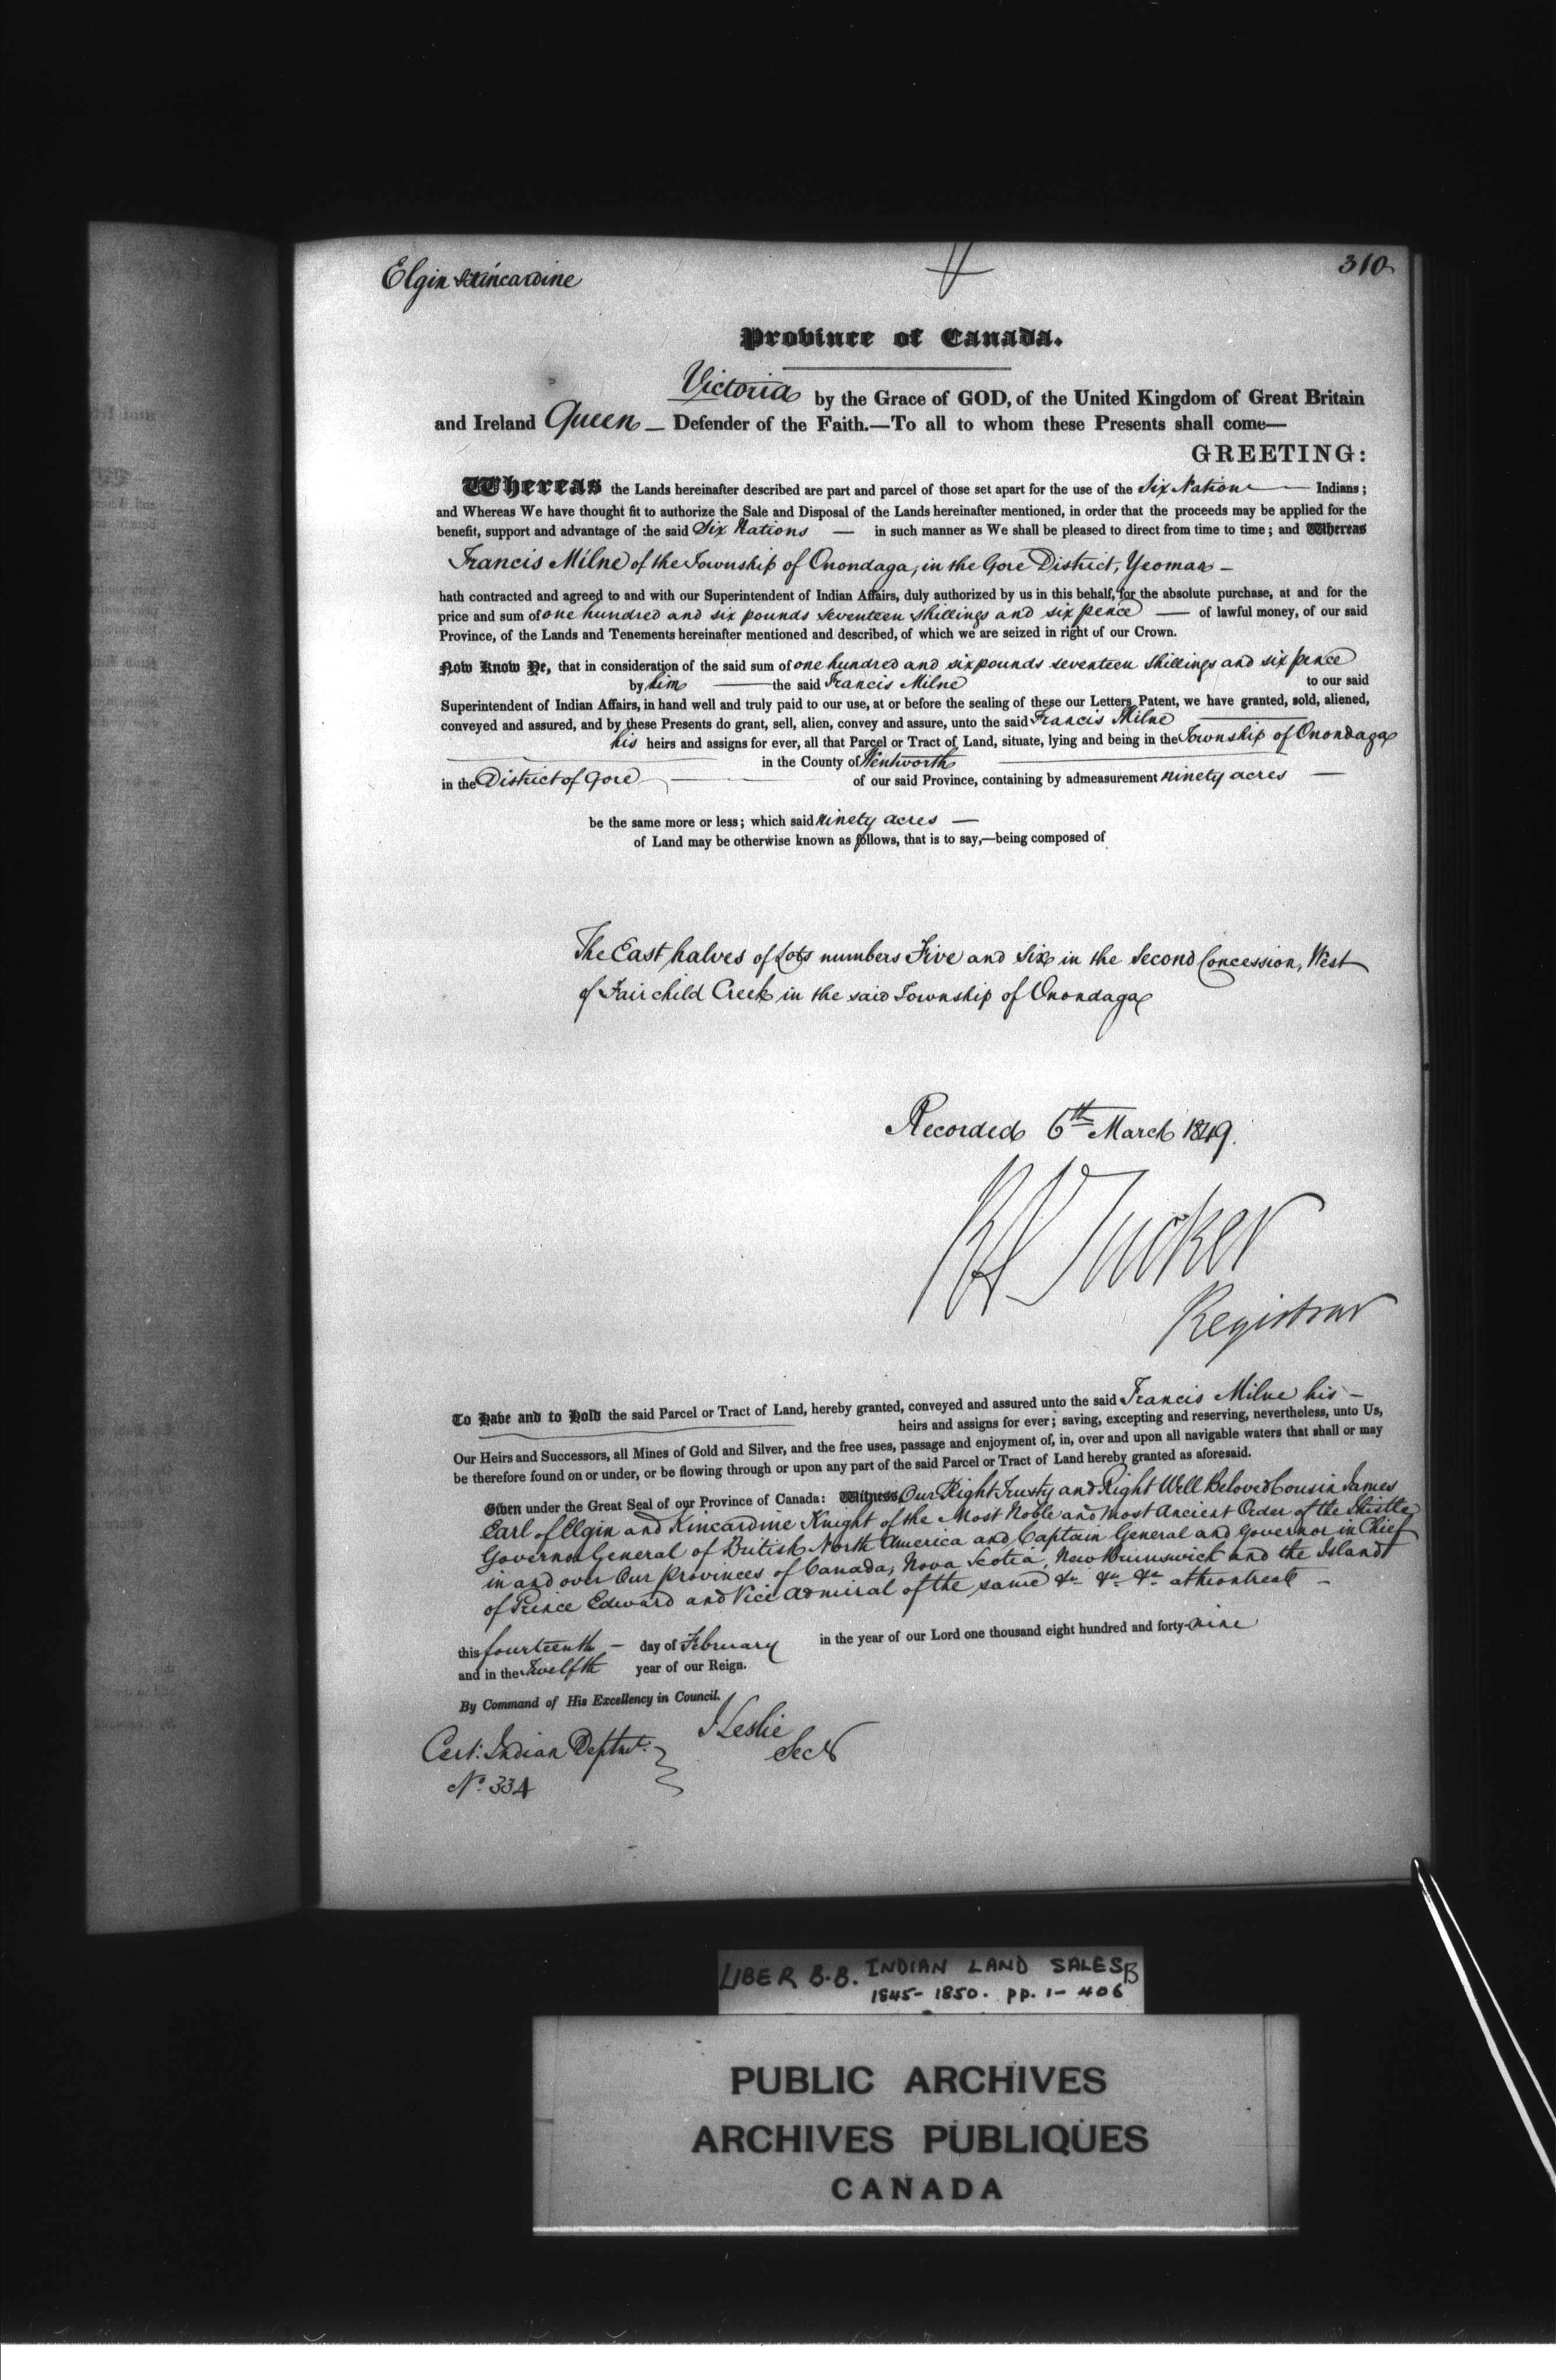 Elgin & Kincardine
310
Province of Canada.
Victoria by the Grace of GOD, of the United Kingdom of Great Britain
and Ireland Queen — Defender of the Faith.—To all to whom these Presents shall come—
GREETING:
Whereas the Lands hereinafter described are part and parcel of those set apart for the use of the Six Nations — Indians;
and Whereas We have thought fit to authorize the Sale and Disposal of the Lands hereinafter mentioned, in order that the proceeds may be applied for the
benefit, support and advantage of the said Six Nations — in such manner as We shall be pleased to direct from time to time; and Whereas
Francis Milne of the Township of Onondaga, in the Gore District, Yeoman —
hath contracted and agreed to and with our Superintendent of Indian Affairs, duly authorized by us in this behalf, for the absolute purchase, at and for the
price and sum of one hundred and six pounds seventeen shillings and six pence — of lawful money, of our said
Province, of the Lands and Tenements hereinafter mentioned and described, of which we are seized in right of our Crown.
Now Know Ye, that in consideration of the said sum of one hundred and six pounds seventeen shillings and six pence
by him — the said Francis Milne to our said
Superintendent of Indian Affairs, in hand well and truly paid to our use, at or before the sealing of these our Letters Patent, we have granted, sold, aliened,
conveyed and assured, and by these Presents do grant, sell, alien, convey and assure, unto the said Francis Milne —
his heirs and assigns for ever, all that Parcel or Tract of Land, situate, lying and being in the Township of Onondaga
— in the County of Wentworth —
in the District of Gore — of our said Province, containing by admeasurement ninety acres —
be the same more or less; which said ninety acres —
of Land may be otherwise known as follows, that is to say,—being composed of
The East halves of Lots numbers Five and Six in the Second Concession, West
of Fairchild Creek in the said Township of Onondaga
Recorded 6th March 1849.
RA Tucker
Registrar
To Have and to Hold the said Parcel or Tract of Land, hereby granted, conveyed and assured unto the said Francis Milne his —
heirs and assigns for ever; saving, excepting and reserving, nevertheless, unto Us,
Our Heirs and Successors, all Mines of Gold and Silver, and the free uses, passage and enjoyment of, in, over and upon all navigable waters that shall or may
be therefore found on or under, or be flowing through or upon any part of the said Parcel or Tract of Land hereby granted as aforesaid.
Given under the Great Seal of our Province of Canada: Witness, Our Right Trusty and Right Well Beloved Cousin James
Earl of Elgin and Kincardine Knight of the Most Noble and most Ancient Order of the Thistle
Governor General of British North America and Captain General and Governor in Chief
in and over Our Provinces of Canada, Nova Scotia, New Brunswick and the Island
of Prince Edward and Vice Admiral of the same &c &c &c at Montreal —
this fourteenth — day of February in the year of our Lord one thousand eight hundred and forty-nine
and in the Twelfth year of our Reign.
By Command of His Excellency in Council.
J Leslie
Secy
Cert: Indian Deptmt.
No. 334
LIBER B.B. INDIAN LAND SALES B
1845-1850. pp. 1-406
PUBLIC ARCHIVES
ARCHIVES PUBLIQUES
CANADA